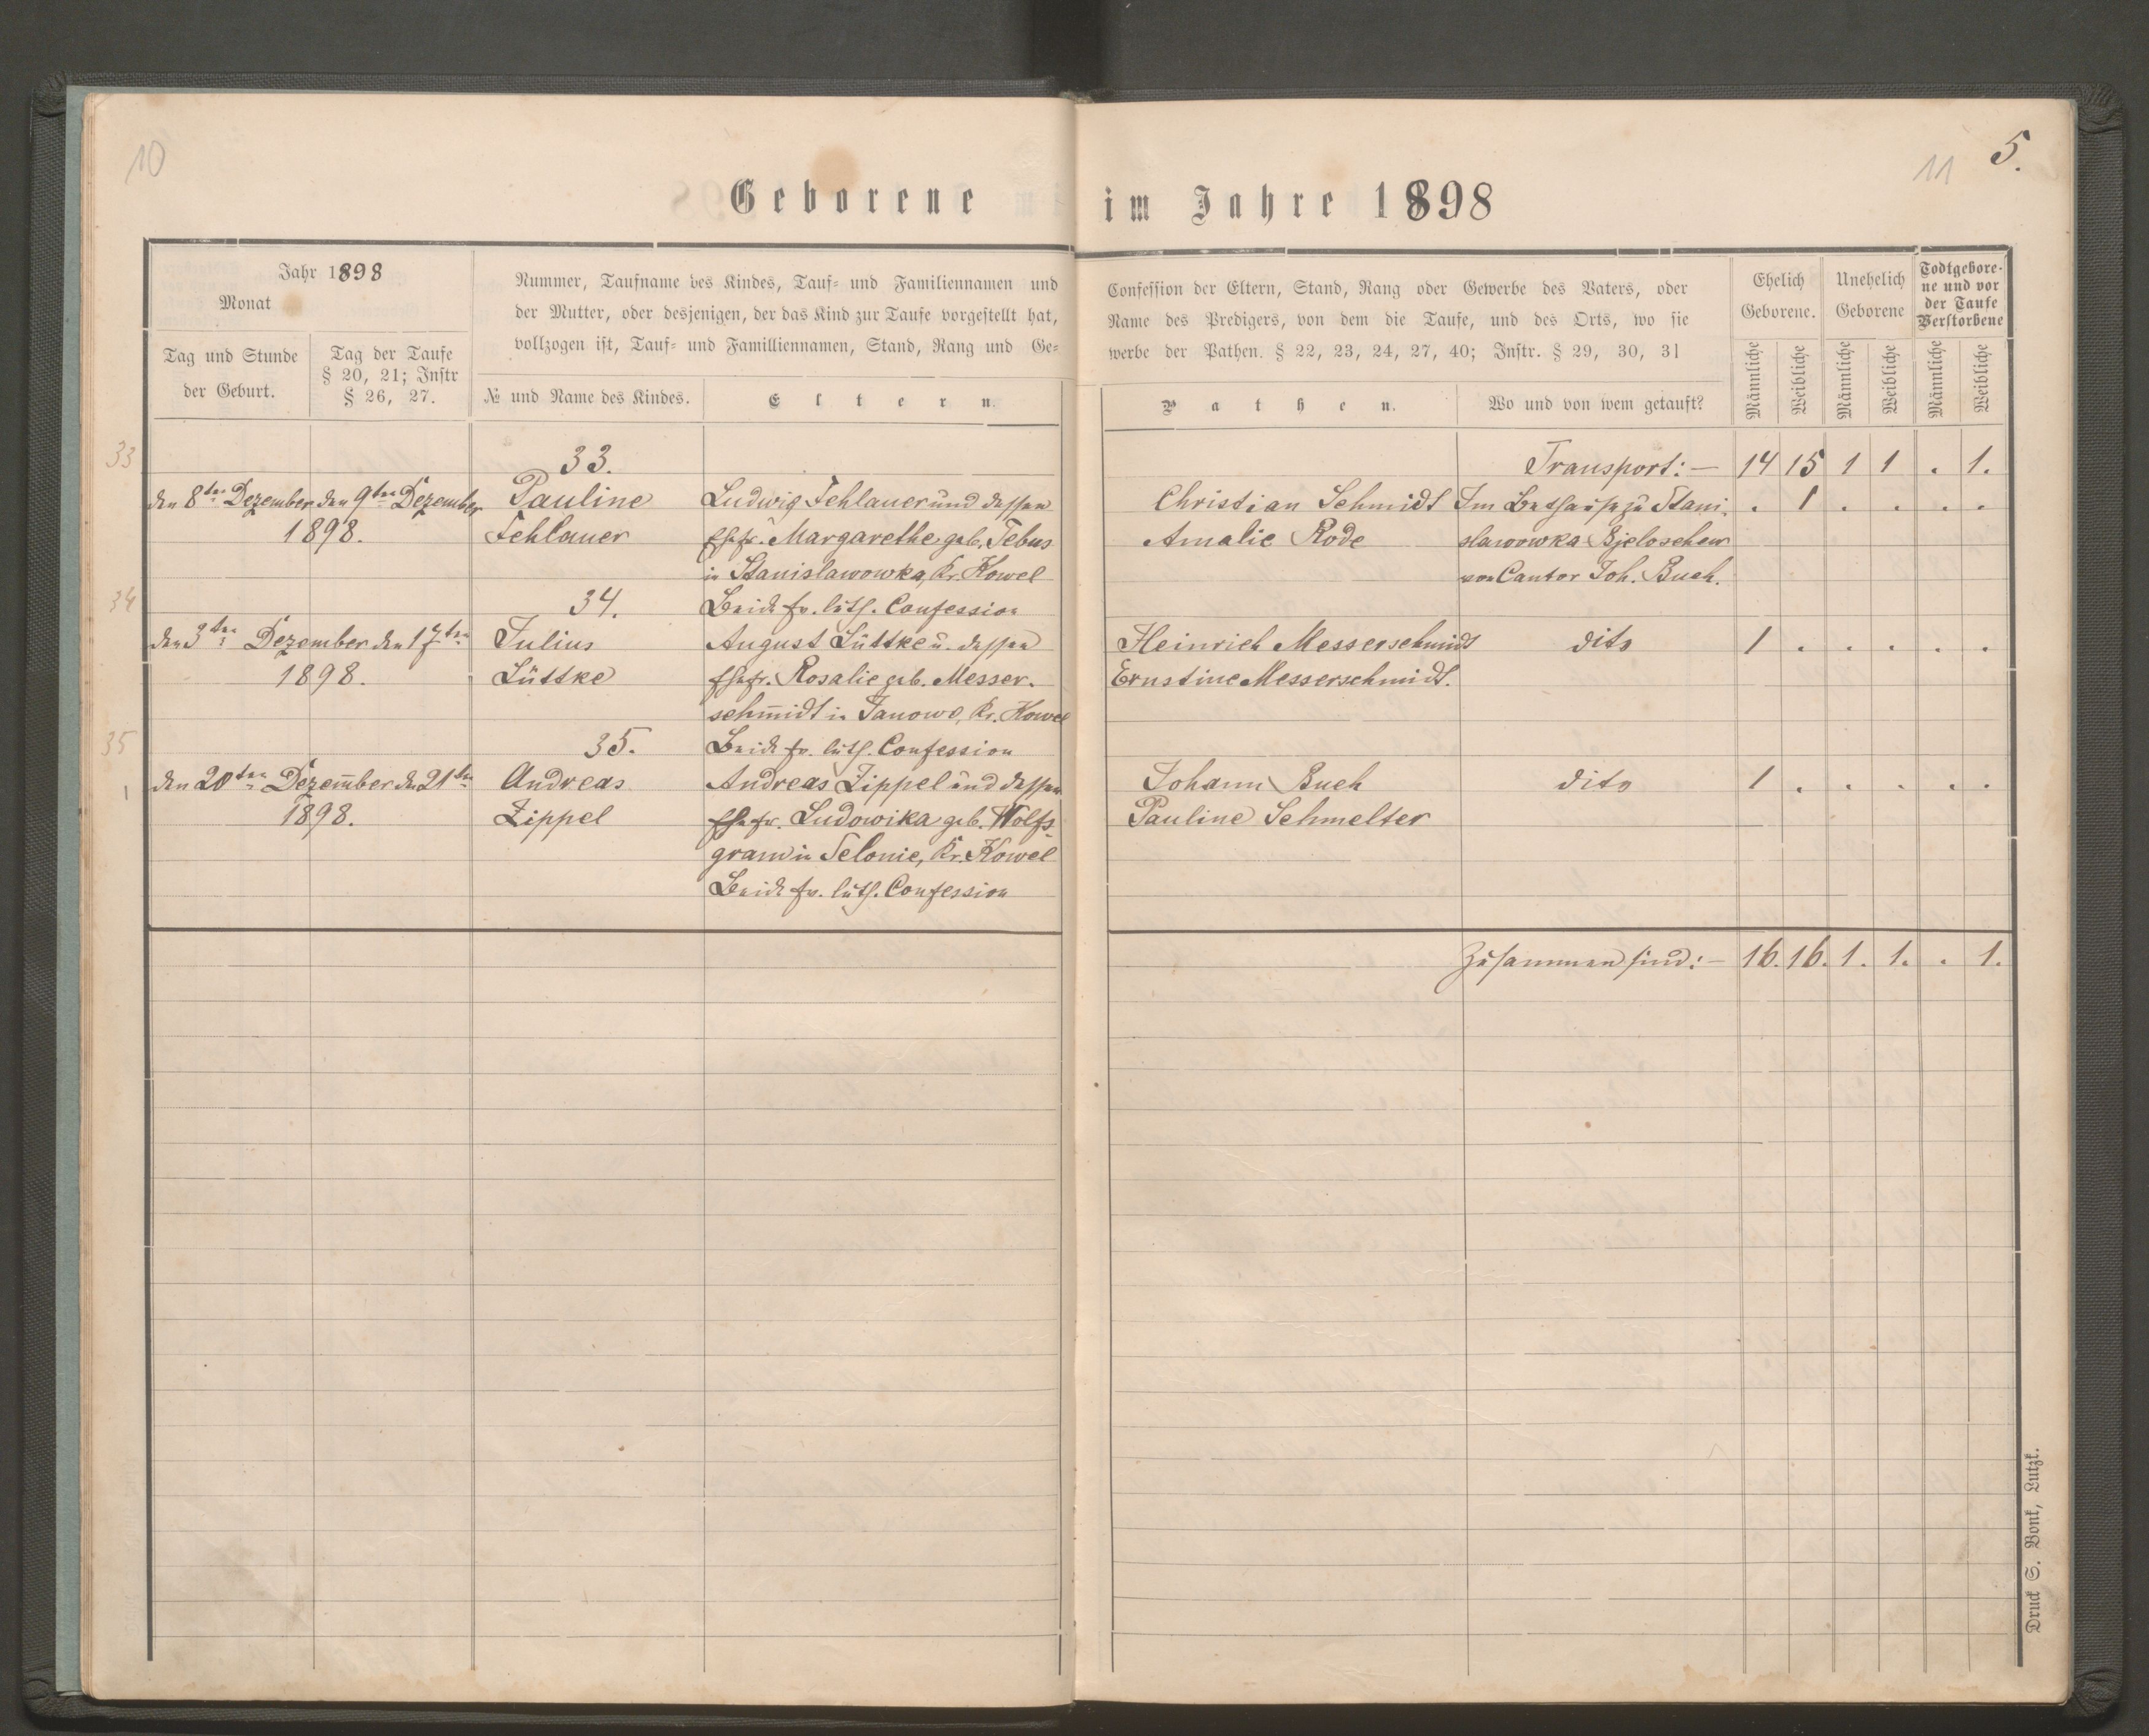 10
11
5.
Geborene im Jahre 1898
Jahr 1898
Monat
Tag und Stunde
der Geburt.
Tag der Taufe
§ 20, 21; Instr
§ 26, 27.
Nummer, Taufname des Kindes, Tauf- und Familiennamen und
der Mutter, oder desjenigen, der das Kind zur Taufe vorgestellt hat,
vollzogen ist, Tauf- und Familliennamen, Stand, Rang und Ge-
№ und Name des Kindes.
Eltern.
Confession der Eltern, Stand, Rang oder Gewerbe des Vaters, oder
Name des Predigers, von dem die Taufe, und des Orts, wo sie
werbe der Pathen. § 22, 23, 24, 27, 40; Instr. § 29, 30, 31
Pathen.
Wo und von wem getauft?
Ehelich
Geborene.
Unehelich
Geborene
Todtgebore-
ne und vor
der Taufe
Verstorbene
Männliche
Weibliche
Männliche
Weibliche
Männliche
Weibliche
33
33.
Transport: — 14 15 1 1 . 1.
den 8ten Dezember den 9ten Dezember
1898.
Pauline
Fehlauer
Ludwig Fehlauer und dessen
Ehefr. Margarethe geb. Tebus
in Stanislawowka, Kr. Kowel
Beide ev. luth. Confession
Christian Schmidt
Amalie Rode
Im Bethause zu Stani-
slawowka-Bjeloschew
von Cantor Joh. Buch.
. 1 . . . .
34
34.
den 3ten Dezember den 17ten
1898.
Julius
Lüttke
August Lüttke u. dessen
Ehefr. Rosalie geb. Messer-
schmidt in Janowo, Kr. Kowel
Beide ev. luth. Confession
Heinrich Messerschmidt
Ernstine Messerschmidt.
dito
1 . . . . .
35
35.
den 20ten Dezember den 21ten
1898.
Andreas
Zippel
Andreas Zippel und dessen
Ehefr. Ludowika geb. Wolfs-
gram in Selonie, Kr. Kowel
Beide ev. luth. Confession
Johann Buch
Pauline Schmelter
dito
1 . . . . .
Zusammen sind: — 16. 16. 1. 1. . 1.
Druck S. Bonk, Lutzk.